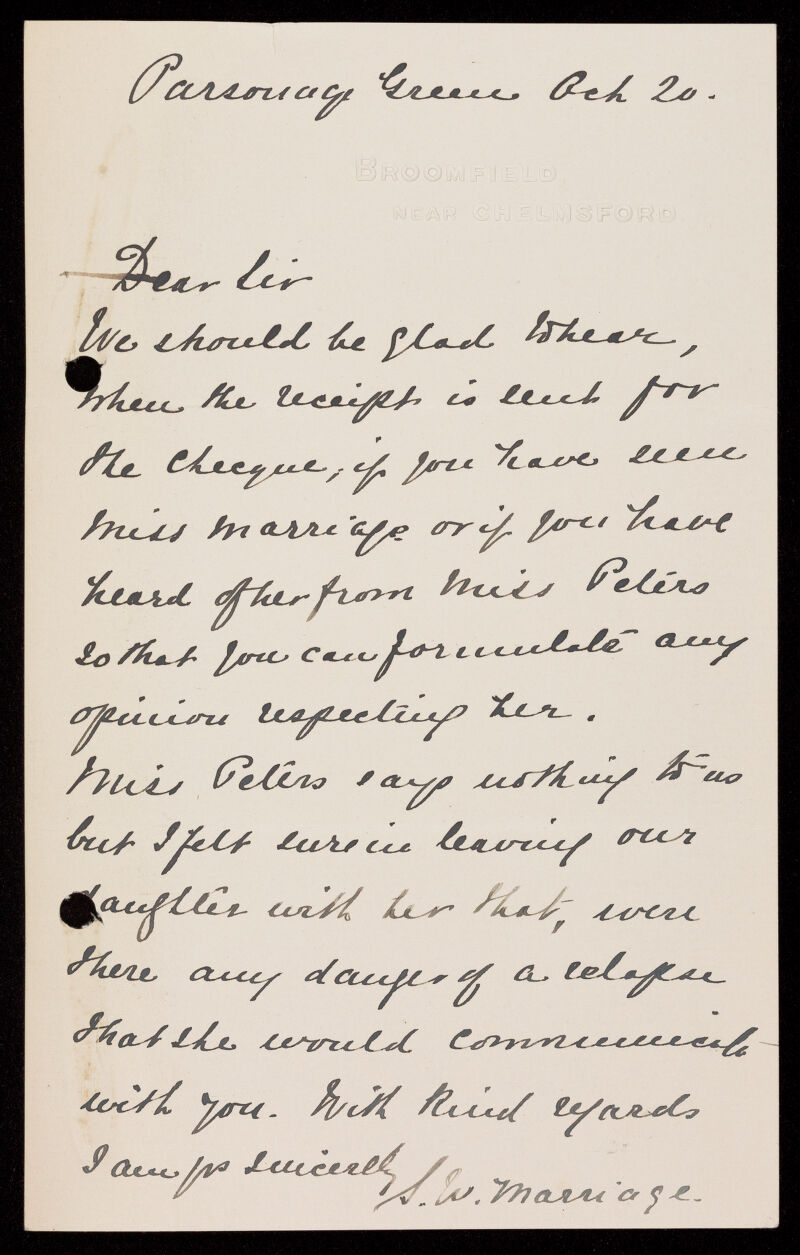 Parsonage Green Oct 20.
BROOMFIELD,
NEAR CHELMSFORD.
Dear Sir
We should be glad to hear,
when the receipt is sent for
the Checque, if you have seen
Miss Marriage or if you have
heard of her from Miss Peters
so that you can formulate any
opinion respecting her.
Miss Peters says nothing to us
but I felt sure in leaving our
daughter with her that, were
there any danger of a relapse
that she would communicate
with you. With kind regards
I am yrs sincerely
S. W. Marriage.